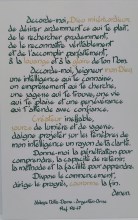 Accorde-moi, Dieu miséricordieux,
de désirer ardemment ce qui te plaît,
de le rechercher prudemment,
de le reconnaître véritablement
et de l'accomplir parfaitement,
à la louange et à la gloire de ton Nom.
Accorde-moi, Seigneur mon Dieu
une intelligence qui te connaisse,
un empressement qui te cherche,
une sagesse qui te trouve, une vie
qui te plaise et une persévérance
qui t'attende avec confiance.
Créateur ineffable,
source de lumière et de sagesse,
daigne projeter sur les ténèbres de
mon intelligence un rayon de ta clarté.
Donne-moi la pénétration pour
comprendre, la capacité de retenir,
la méthode et la facilité pour apprendre.
Dispose le commencement,
dirige le progrès, couronne la fin.
Amen.